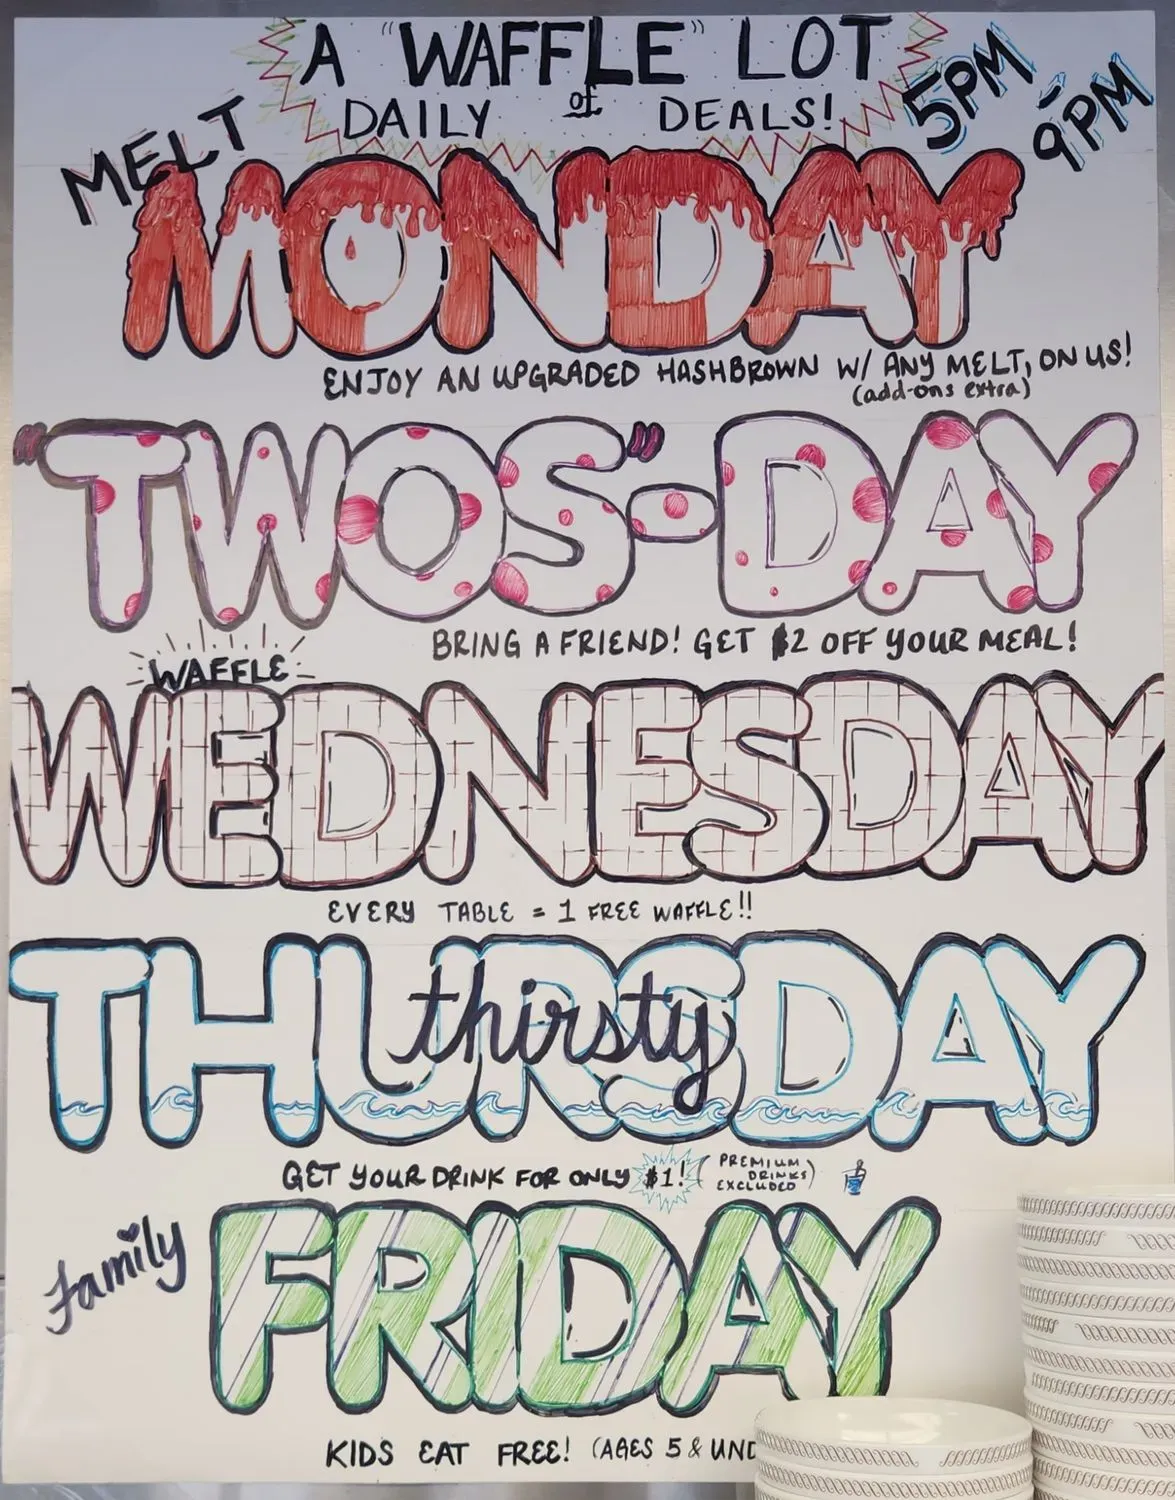 A "WAFFLE" LOT
of
DAILY DEALS!
5PM
- 9PM
MELT
MONDAY
ENJOY AN UPGRADED HASHBROWN W/ ANY MELT, ON US!
(add-ons extra)
"TWOS"-DAY
BRING A FRIEND! GET $2 OFF YOUR MEAL!
WAFFLE
WEDNESDAY
EVERY TABLE = 1 FREE WAFFLE!!
THURSDAY
thirsty
GET YOUR DRINK FOR ONLY $1! (PREMIUM
DRINKS
EXCLUDED)
Family
FRIDAY
KIDS EAT FREE! (AGES 5 & UND